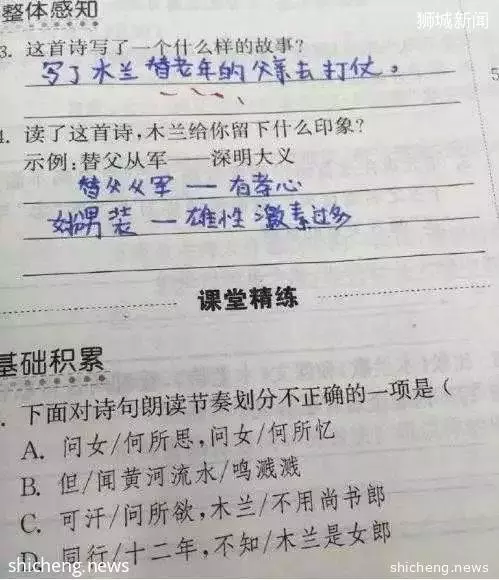 整体感知
狮城新闻
3. 这首诗写了一个什么样的故事?
写了木兰替老年的父亲去打仗。
5
. 读了这首诗,木兰给你留下什么印象?
示例:替父从军——深明大义
替父从军 — 有孝心
女扮男装 — 雄性激素过多
课堂精练
基础积累
. 下面对诗句朗读节奏划分不正确的一项是(
A. 问女/何所思,问女/何所忆
B. 但/闻黄河流水/鸣溅溅
C. 可汗/问所欲,木兰/不用尚书郎
D. 同行/十二年,不知/木兰是女郎
shicheng.news
shicheng.news